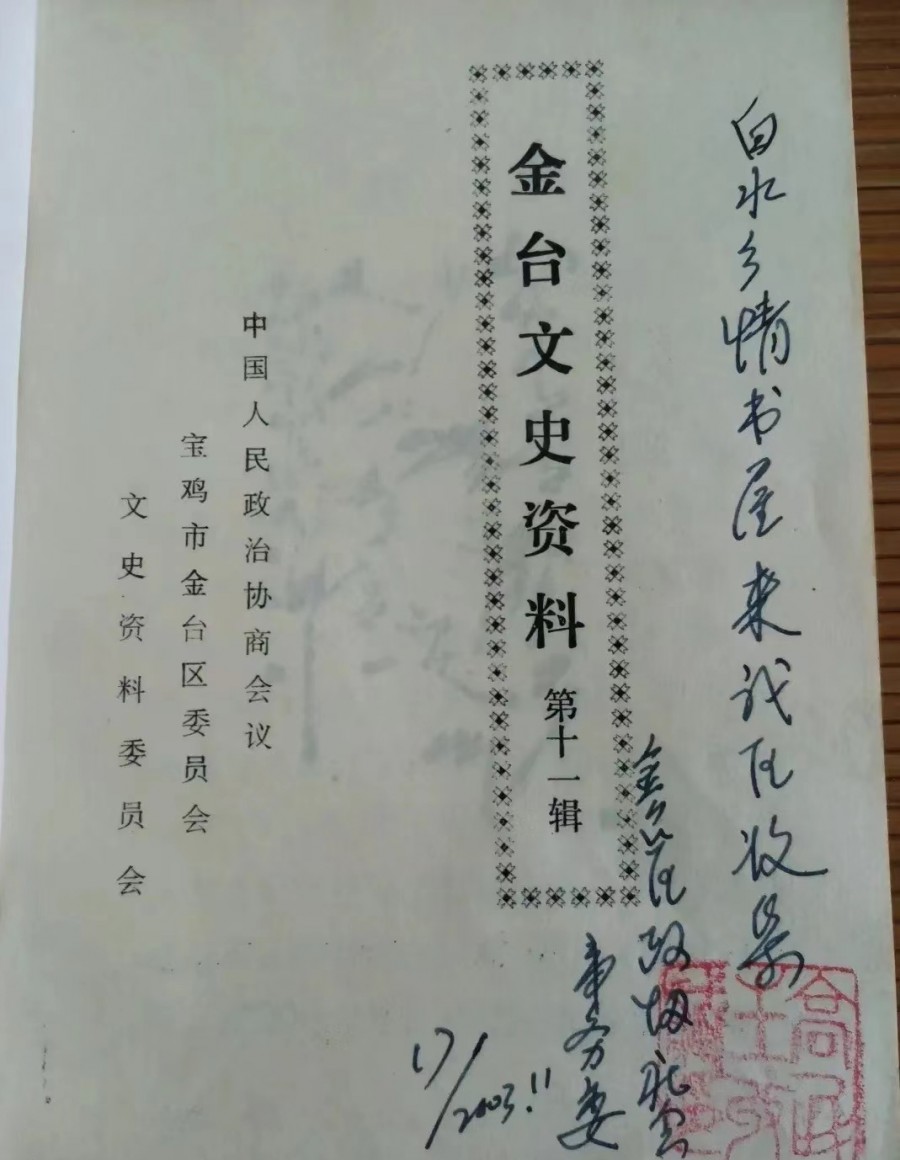 白水乡情书屋来我区收
金台区政协社会
事务委
金台文史资料 第十一辑
中国人民政治协商会议
宝鸡市金台区委员会
文史资料委员会